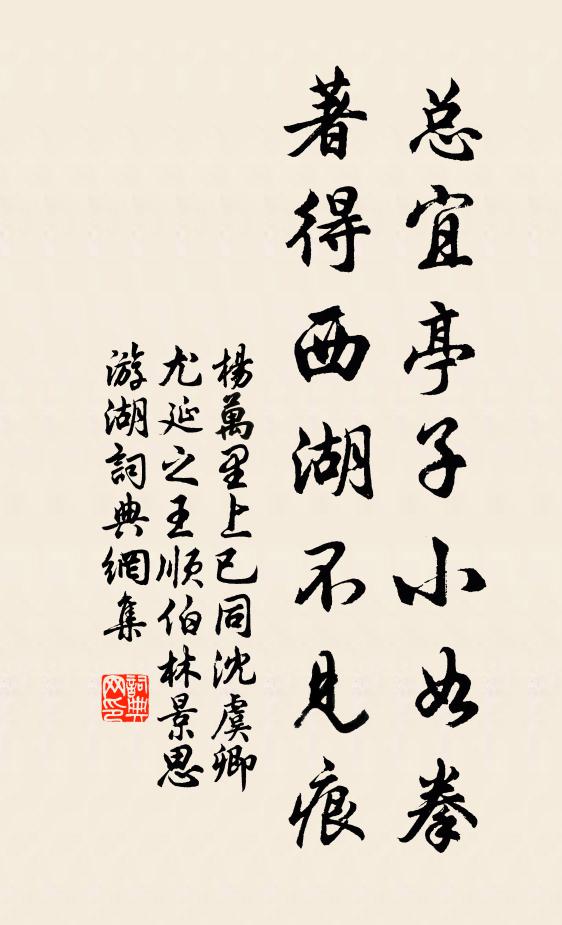 总宜亭子小如拳
著得西湖不见痕
楊萬里上已同沈虞卿
尤延之王順伯林景思
游湖詞典網集
詞典网印